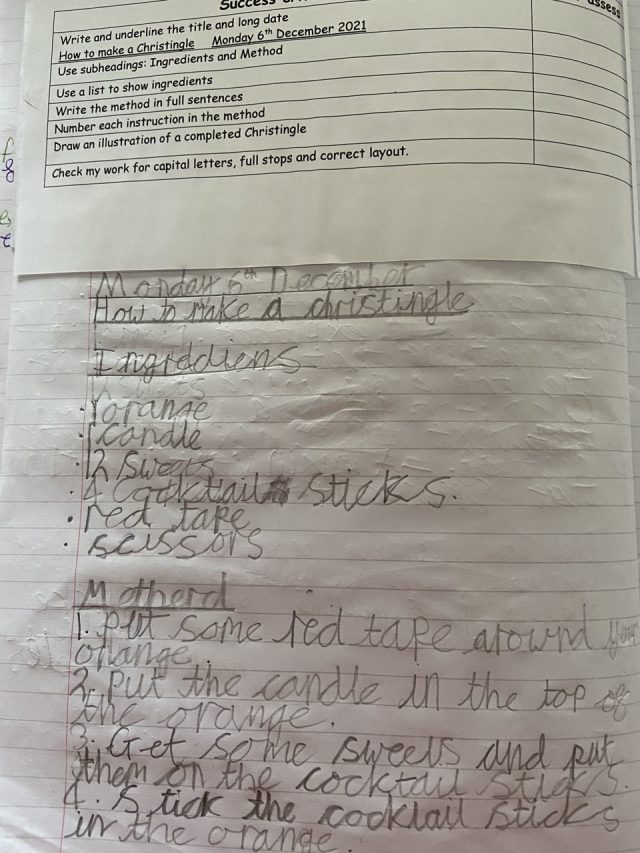 Write and underline the title and long date
How to make a Christingle Monday 6th December 2021
Use subheadings: Ingredients and Method
Use a list to show ingredients
Write the method in full sentences
Number each instruction in the method
Draw an illustration of a completed Christingle
Check my work for capital letters, full stops and correct layout.
Monday 6th December
How to make a christingle
Ingrediens
· 1 orange
· 1 candle
· 12 sweets
· 4 cocktail sticks.
· red tape
· scissors
Metherd
1. Put some red tape around your
orange.
2. Put the candle in the top of
the orange.
3. Get some sweets and put
them on the cocktail sticks.
4. Stick the cocktail sticks
in the orange.